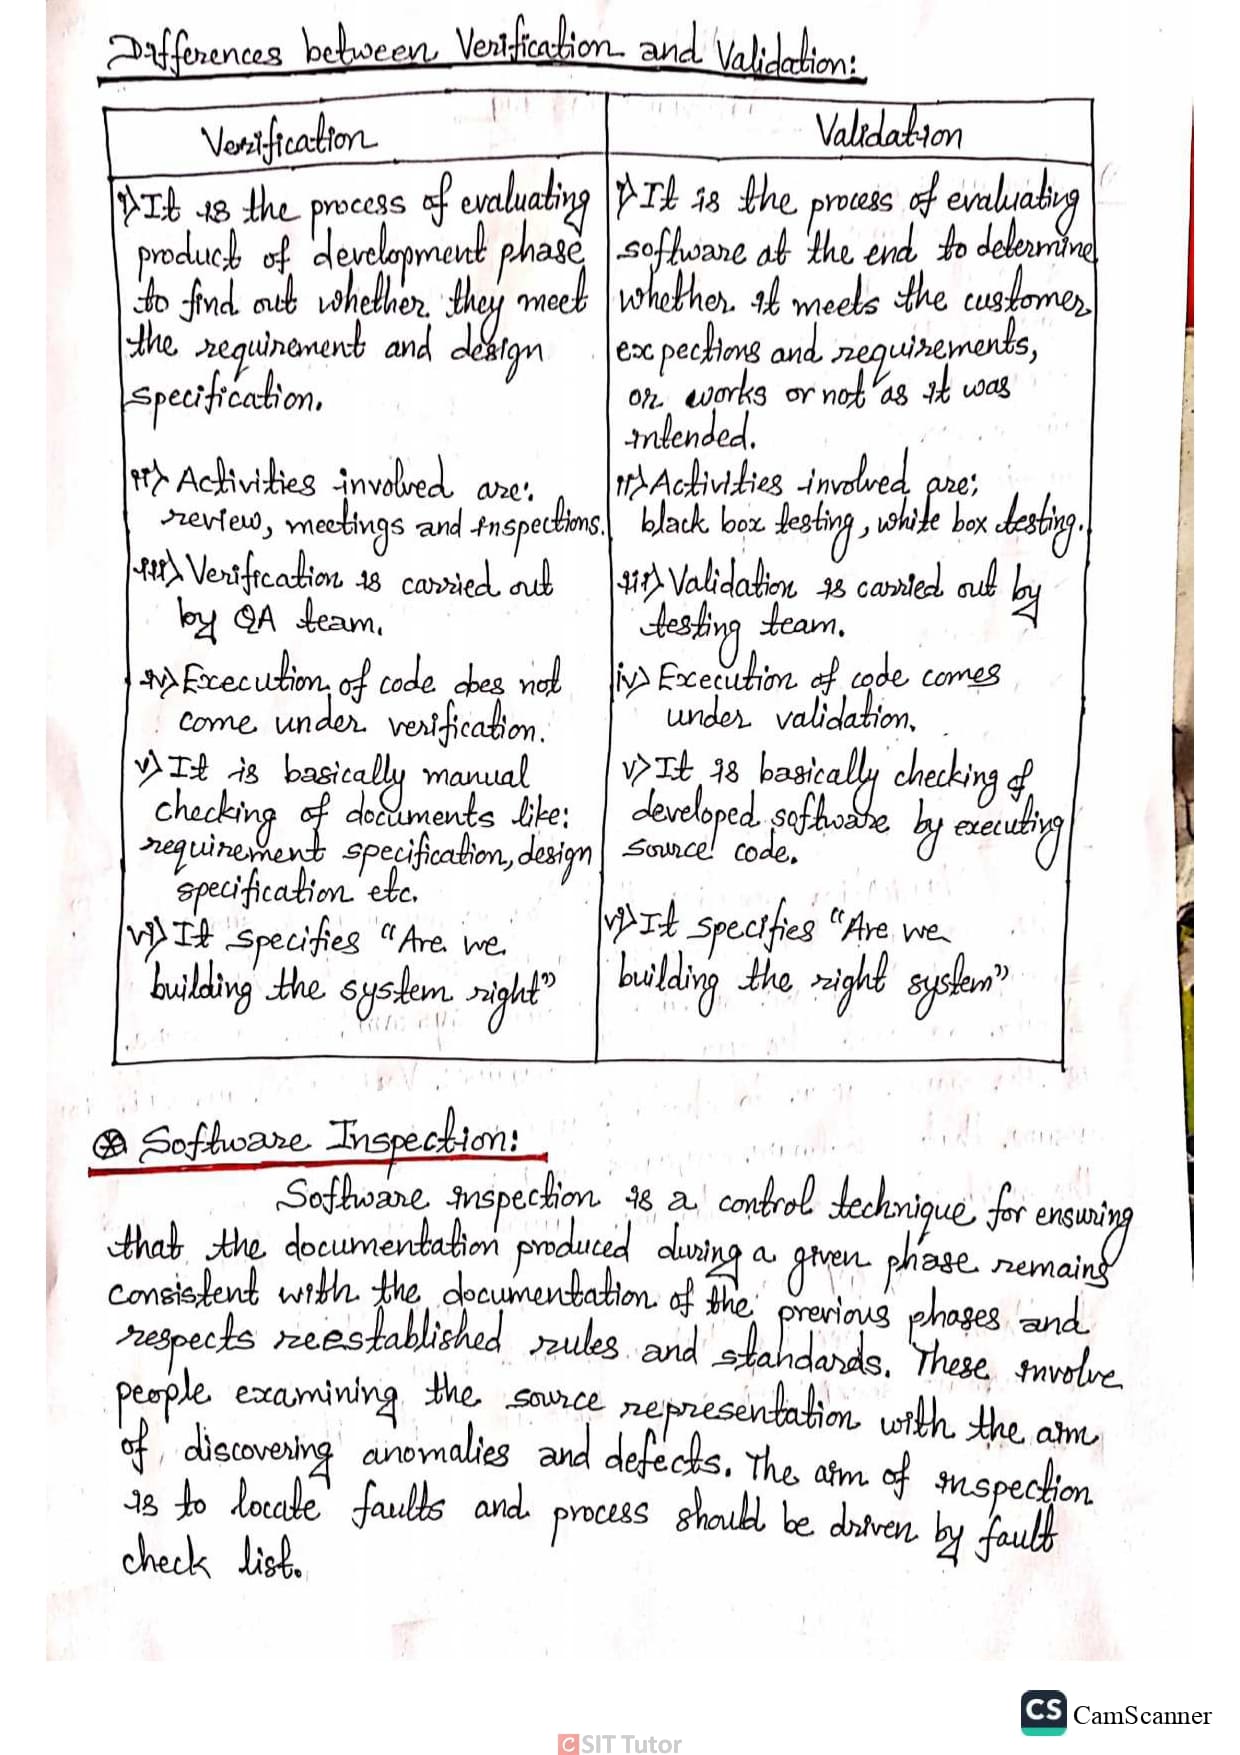 Differences between Verification and Validation:
Verification
i) It is the process of evaluating
product of development phase
to find out whether they meet
the requirement and design
specification.
ii) Activities involved are:
review, meetings and inspections.
iii) Verification is carried out
by QA team.
iv) Execution of code does not
come under verification.
v) It is basically manual
checking of documents like:
requirement specification, design
specification etc.
vi) It specifies "Are we
building the system right"
Validation
i) It is the process of evaluating
software at the end to determine
whether it meets the customer
expections and requirements,
or works or not as it was
intended.
ii) Activities involved are:
black box testing, white box testing.
iii) Validation is carried out by
testing team.
iv) Execution of code comes
under validation.
v) It is basically checking of
developed software by executing
source code.
vi) It specifies "Are we
building the right system"
Software Inspection:
Software inspection is a control technique for ensuring
that the documentation produced during a given phase remains
consistent with the documentation of the previous phases and
respects reestablished rules and standards. These involve
people examining the source representation with the aim
of discovering anomalies and defects. The aim of inspection
is to locate faults and process should be driven by fault
check list.
CS CamScanner
CSIT Tutor